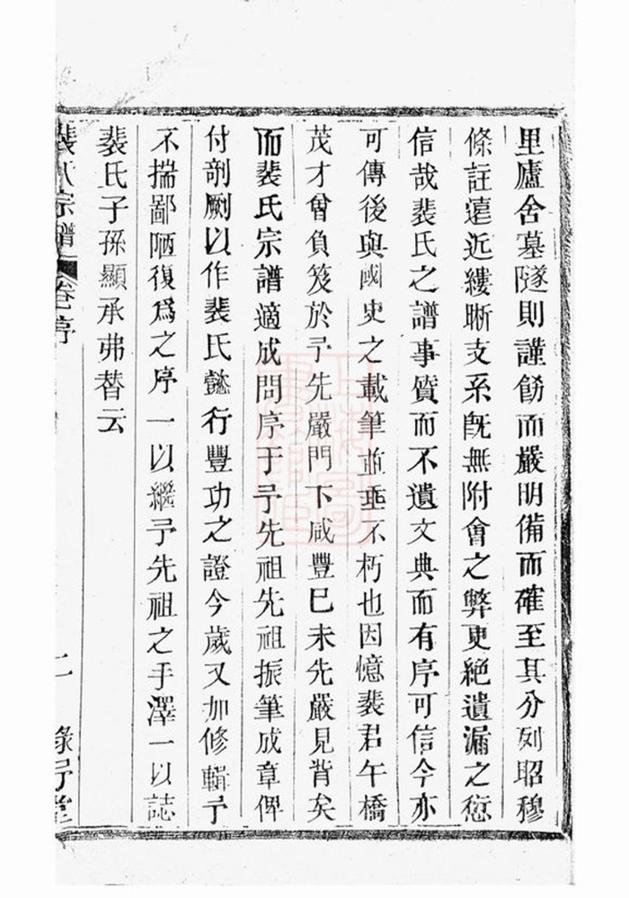 里廬舍墓隧則謹飭而嚴明備而確至其分列昭穆
條註遠近縷晰支系旣無附會之弊更絕遺漏之愆
信哉裴氏之譜事質而不遺文典而有序可信今亦
可傳後與國史之載筆並垂不朽也因憶裴君午橋
茂才曾負笈於予先嚴門下咸豐巳未先嚴見背矣
而裴氏宗譜適成問序于予先祖先祖振筆成章俾
付剞劂以作裴氏懿行豐功之證今歲又加修輯予
不揣鄙陋復爲之序一以繼予先祖之手澤一以誌
裴氏子孫顯承弗替云
裴氏宗譜 卷 序 二